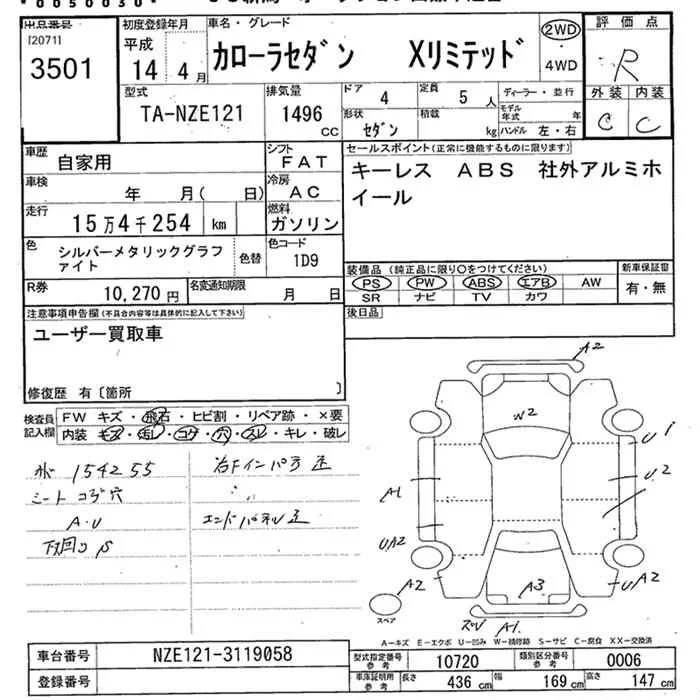 出品番号
[2071]
3501
初度登録年月
平成
14 4月
車名・グレード
カローラセダン Xリミテッド
2WD
4WD
評価点
R
外装 内装
C C
型式
TA-NZE121
排気量
1496
cc
ドア
4
定員
5人
形状
セダン
積載
kg
ディーラー・並行
モデル年式 年
ハンドル 左・右
車歴
自家用
シフト
FAT
車検
年 月( 日)
冷房
AC
走行
15万4千254 km
燃料
ガソリン
色
シルバーメタリックグラファイト
色替
色コード
1D9
R券
10,270円
名変通知期限
月 日
セールスポイント(正常に機能するものに限ります)
キーレス ABS 社外アルミホ
イール
装備品(純正品に限り○をつけてください)
PS PW ABS エアB AW
SR ナビ TV カワ
新車保証書
有・無
後日品
注意事項申告欄(不具合内容等は具体的に記入して下さい)
ユーザー買取車
修復歴 有〔箇所 〕
検査員
記入欄
FW キズ・飛石・ヒビ割・リペア跡・×要
内装・キズ・汚レ・コゲ・穴・スレ・キレ・破レ
154255
シート コゲ穴
A・U
下回りS
右Fインパネ歪
エンドパネル歪
A2
W2
U1
A1
U2
UA2
A2
A3
UA2
A1
スペア
A-キズ E-エクボ U-凹み W-補修跡 S-サビ C-腐食 XX-交換済
車台番号
NZE121-3119058
登録番号
型式指定番号
参考
10720
類別区分番号
参考
0006
車庫証明用
参考
長さ 436 cm 幅 169 cm 高さ 147 cm